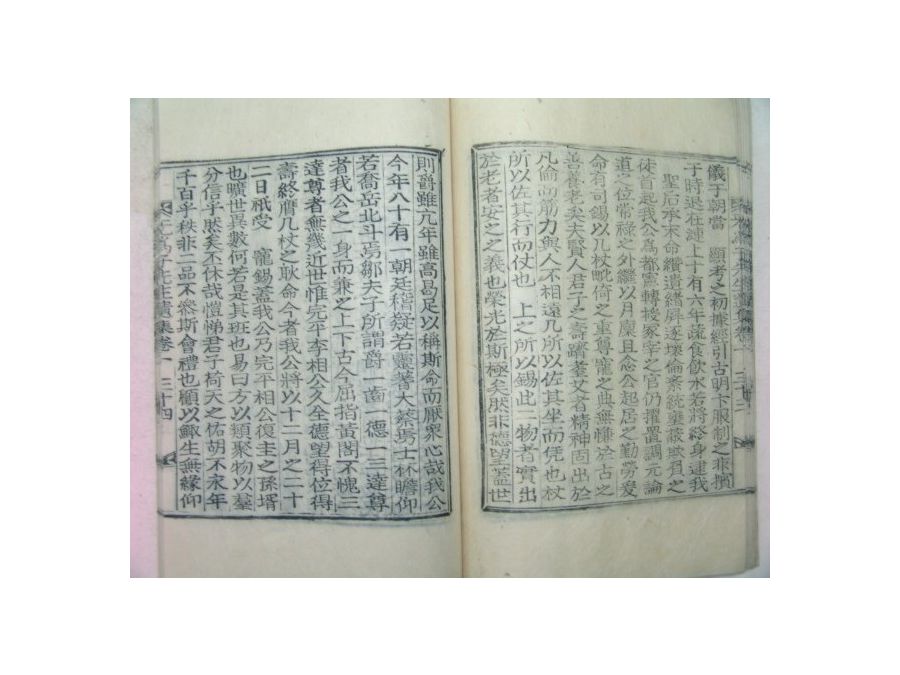 儀于朝當 顯考之初據經引古明卞服制之非擯
于時退在漣上十有六年疏食飲水若將終身逮我
聖后丕承末命纘遺緖屛逐壞倫紊統蠥蔽欺員之
徒首起我公爲都憲轉授冢宰之官仍擢置調元論
道之位常祿之外繼以月廩且念公起居之勤勞爰
命有司錫以几杖畀倚之重尊寵之典無慊於古之
善養老夫夫賢人君子之壽躋耆艾者精神固出於
凡倫而筋力與人不相遠几所以佐其坐而凭也杖
所以佐其行而仗也 上之所以錫此二物者實出
於老者安之之義也榮光於斯極矣然非德望蓋世
則爵雖亢年雖高曷足以稱斯命而厭衆心哉我公
今年八十有一朝廷稽疑若靈蓍大蔡焉士林瞻仰
若喬岳北斗焉鄒夫子所謂爵一齒一德一三達尊
者我公之一身而兼之上下古今屈指黃閣不愧三
達尊者無幾近世惟完平李相公久全德望得位得
壽終膺几杖之耿命今者我公將以十二月之二十
二日祇受 寵錫蓋我公乃完平相公復主之孫壻
也曠世異數何若是其班也易曰方以類聚物以羣
分信乎然矣不休哉愷悌君子荷天之佑胡不永年
千百乎秩非二品不參斯會禮也顧以鯫生無緣仰
先生遺集卷一 三十四